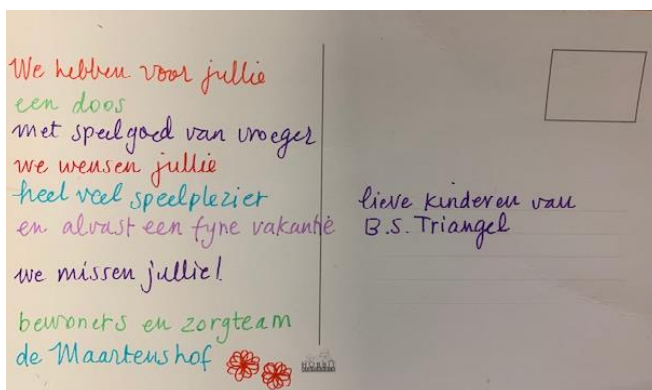 We hebben voor jullie
een doos
met speelgoed van vroeger
we wensen jullie
heel veel speelplezier
en alvast een fyne vakantie
we missen jullie!
bewoners en zorgteam
de Maartenshof
lieve kinderen van
B.S. Triangel